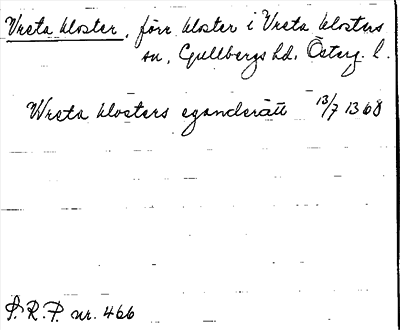 Vreta kloster, förr kloster i Vreta klosters
sn, Gullbergs hd, Österg. l.
Wreta klosters eganderätt 13/7 1368
S.R.P. nr. 466